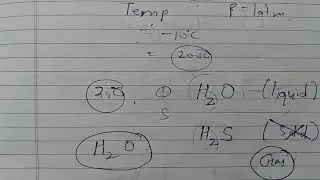 Temp P = 1atm
= -10°C
= 200°C
250. ⊕ H₂O - (liquid)
S H₂S (Solid)
H₂O Gas